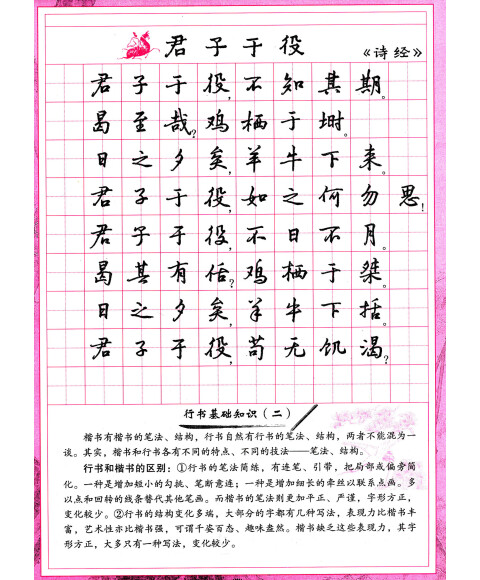 君子于役
《诗经》
君子于役，不知其期。
曷至哉？鸡栖于埘。
日之夕矣，羊牛下来。
君子于役，如之何勿思！
君子于役，不日不月。
曷其有佸？鸡栖于桀。
日之夕矣，羊牛下括。
君子于役，苟无饥渴？
行书基础知识（二）
楷书有楷书的笔法、结构，行书自然有行书的笔法、结构，两者不能混为一
谈。其实，楷书和行书各有不同的特点、不同的技法——笔法、结构。
行书和楷书的区别：①行书的笔法简练，有连笔、引带，把局部或偏旁简
化。一种是增加短小的勾挑、笔断意连；一种是增加细长的牵丝以联系点画。多
以点和回转的线条替代其他笔画。而楷书的笔法则更加平正、严谨，字形方正，
变化较少。②行书的结构变化多端，大部分的字都有几种写法，表现力比楷书丰
富，艺术性亦比楷书强，可谓千姿百态、趣味盎然。楷书缺乏这些表现力，其字
形方正，大多只有一种写法，变化较少。